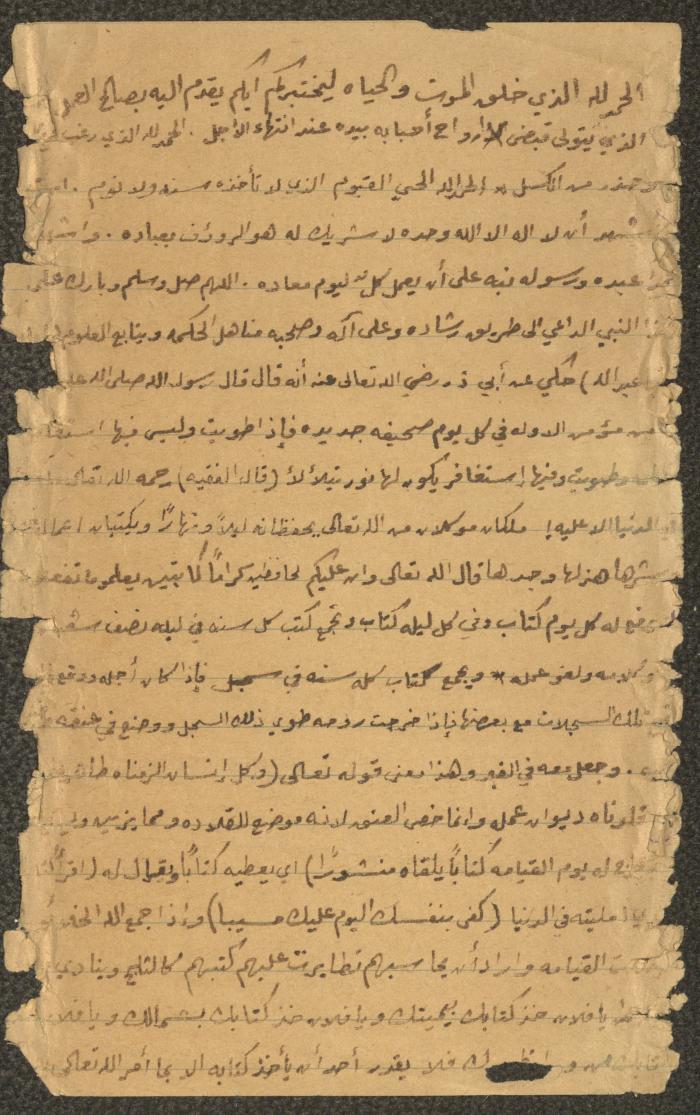 الحمد لله الذي خلق الموت والحياه ليختبركم أيكم يقدم اليه بصالح العمل
الذي يتولى قبض ارواح أحبابه بيده عند انتهاء الأجل . الحمد لله الذي رغب
وحذر من الكسل * الحمد لله الحي القيوم الذي لا تأخذه سنه ولا نوم .
أشهد أن لا اله الا الله وحده لا شريك له هو الرؤوف بعباده . واشهد
عبده ورسوله نبه على أن يعمل كل ليوم معاده . اللهم صل وسلم وبارك على
هذا النبي الداعي الى طريق رشاده وعلى آله وصحبه مناهل الحكمه وينابع العلوم
عبد الله) حكي عن أبي ذر رضي الله تعالى عنه أنه قال قال رسول الله صلى الله عليه
ما من مؤمن الا وله في كل يوم صحيفه جديده فإذا طويت وليس فيها استغفار
وطويت وفيها إستغفار يكون لها نور يتلألأ (قال الفقيه) رحمه الله تعالى
الدنيا الا عليه ملكان موكلان من الله تعالى يحفظانه ليلاً ونهارًا ويكتبان اعماله
وشرها هزلها وجدها قال الله تعالى وان عليكم لحافظين كرامًا كاتبين يعلمون ما تفعلون
يرفع له كل يوم كتاب وفي كل ليله كتاب وتجمع كتب كل سنه في ليله نصف شعبان
وكلامه ولغو عمله * ويجمع كتاب كل سنه في سجل فإذا كان أجله ووقع
تلك السجلات مع بعضها فإذا خرجت روحه طوي ذلك السجل ووضع في عنقه
. وجعل معه في القبر وهذا معنى قوله تعالى (وكل إنسان الزمناه طائره
قلدناه ديوان عمله وانما خص العنق لانه موضع للقلاده ومما يزين
ونخرج له يوم القيامه كتابًا يلقاه منشورًا) اي يعطيه كتابًا ويقال له (اقرأ كتابك
امليته في الدنيا (كفى بنفسك اليوم عليك حسيبا) وإذا جمع الله الخلائق
القيامه واراد أن يحاسبهم تطايرت عليهم كتبهم كالثلج وينادي
يا فلان خذ كتابك بيمينك ويا فلان خذ كتابك بشمالك ويا فلان
كتابك من فلا يقدر أحد أن يأخذ كتابه الا بما أمر الله تعالى